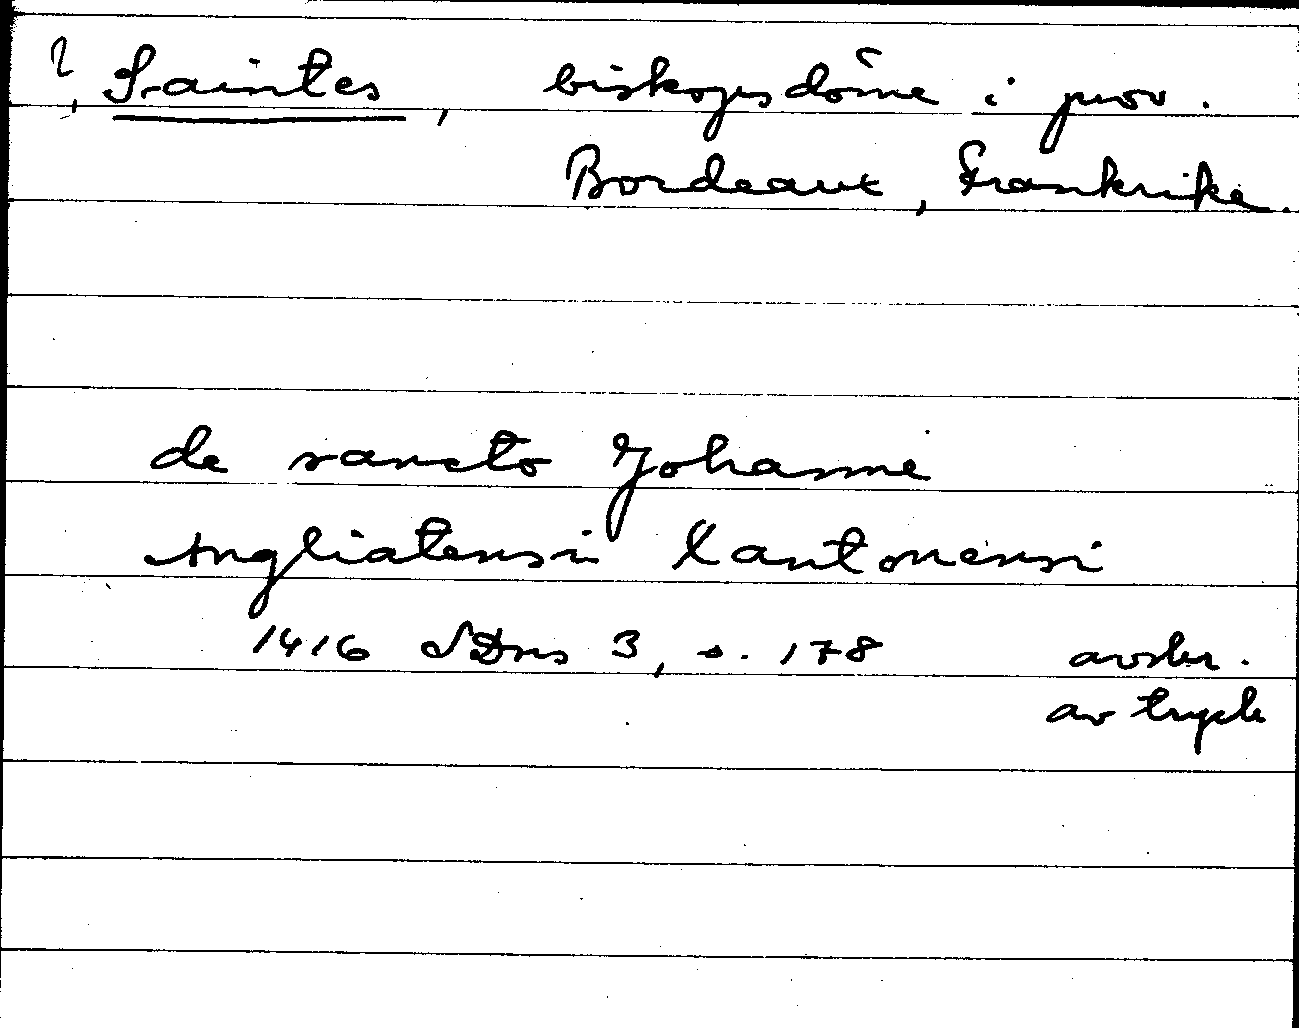 ?, Saintes, biskopsdöme i prov.
Bordeaux, Frankrike.
de sancto Johanne
Angliatensi Xantonensi
1416 SDns 3, s. 178 avskr.
av tryck